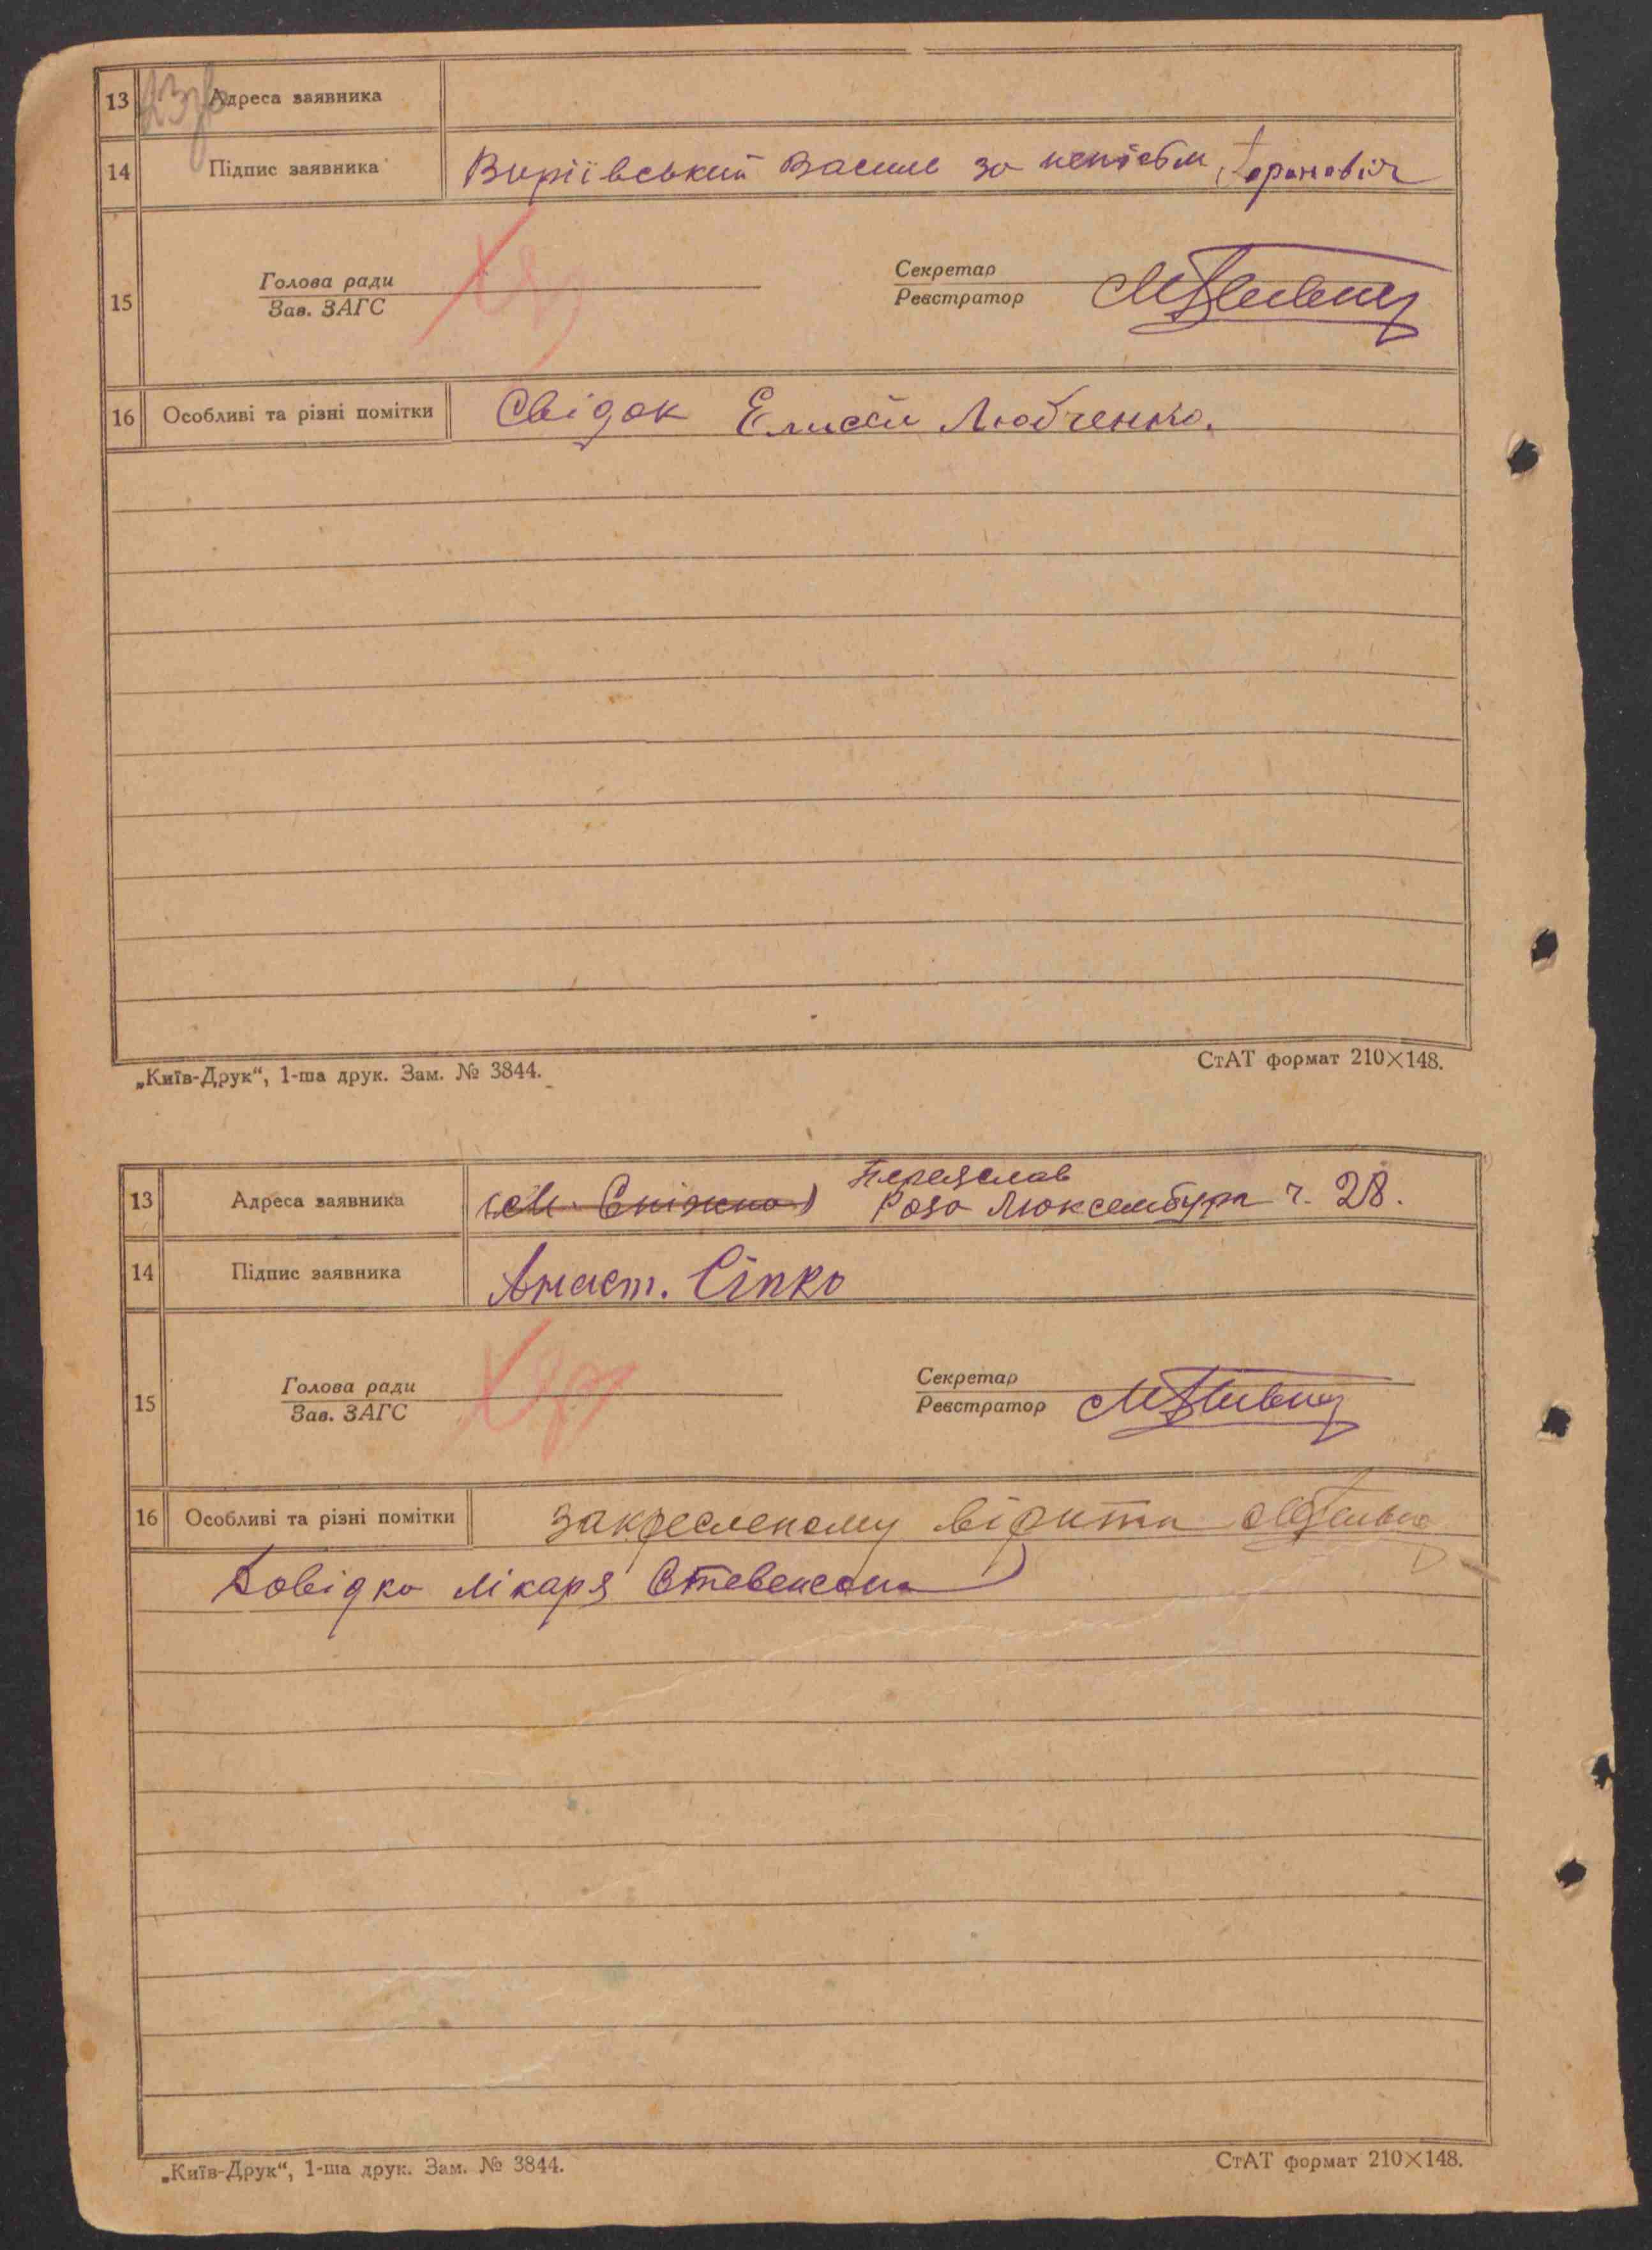 23зв
13 Адреса заявника
14 Підпис заявника Виріївський Василь за неписьм.
15 Голова ради Зав. ЗАГС Секретар Реєстратор
16 Особливі та різні помітки Свідок Елисей Любченко.
„Київ-Друк“, 1-ша друк. Зам. № 3844. СтАТ формат 210×148.
Переяслав
13 Адреса заявника Роза Люксембург ч. 28.
14 Підпис заявника Анаст. Сіпко
15 Голова ради Зав. ЗАГС Секретар Реєстратор
16 Особливі та різні помітки закресленому вірити
Довідка лікаря Стевенсона
„Київ-Друк“, 1-ша друк. Зам. № 3844. СтАТ формат 210×148.